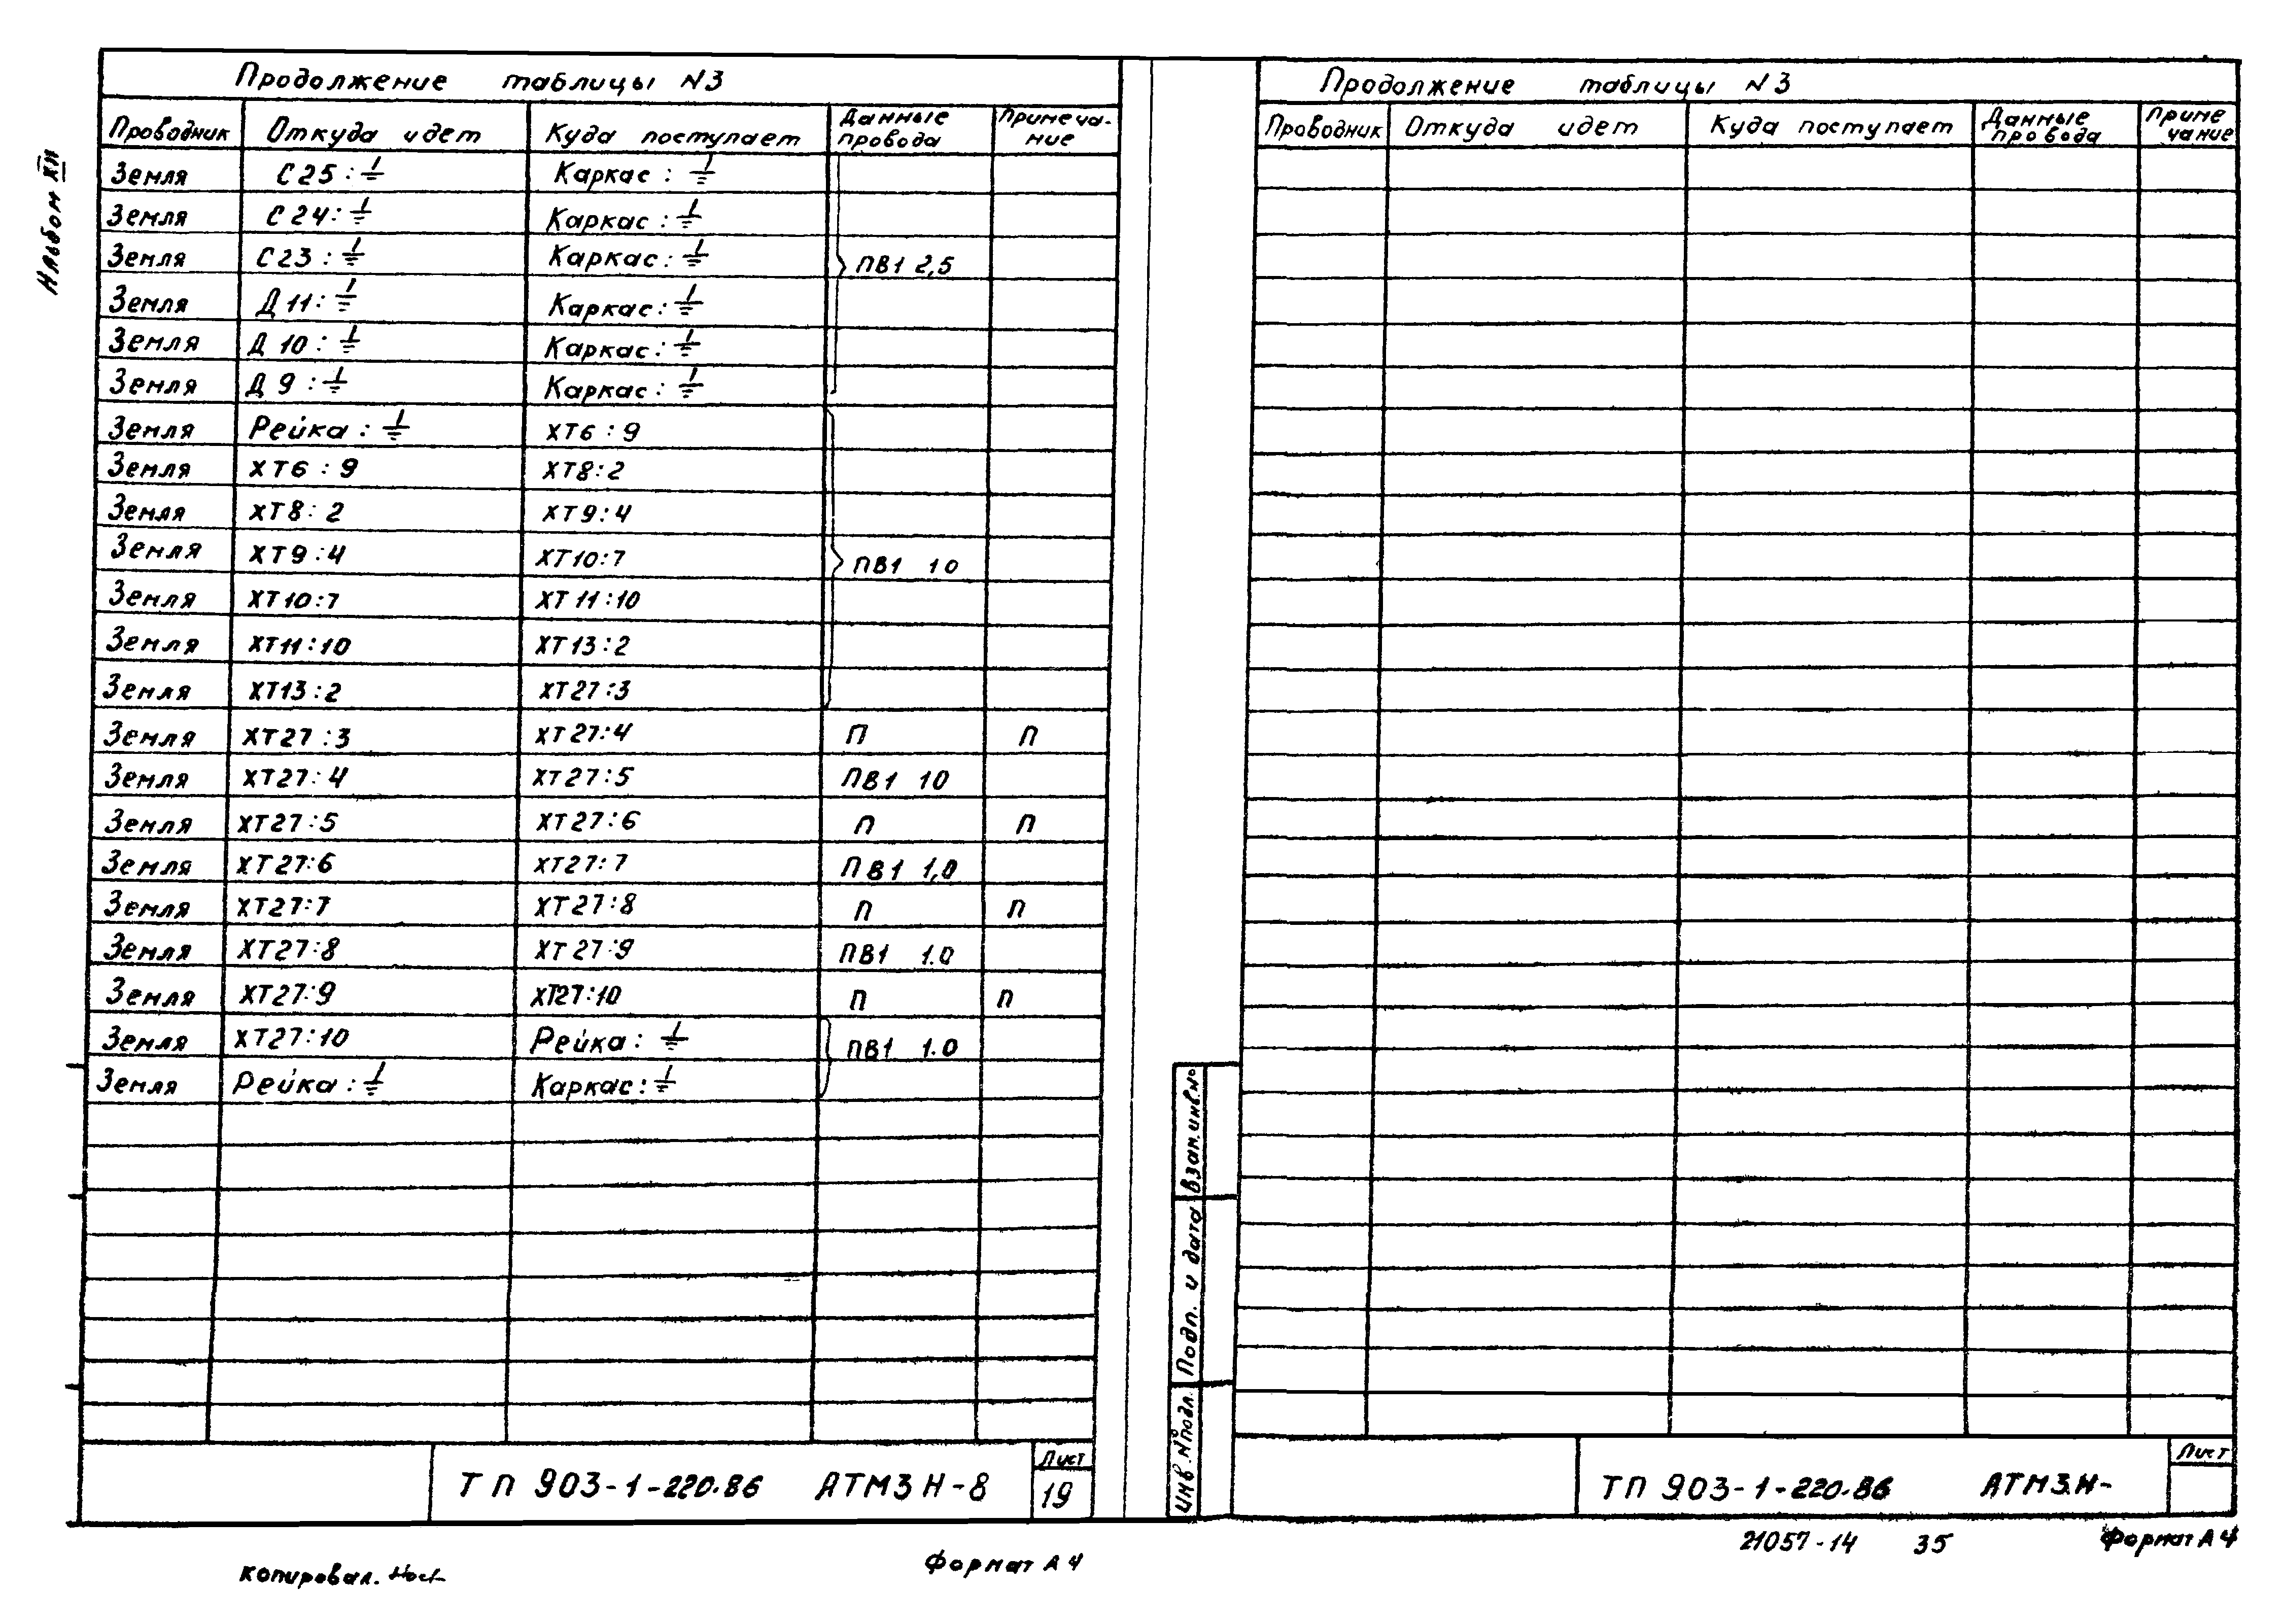 Альбом XII
Продолжение таблицы N3
Проводник Откуда идет Куда поступает Данные провода Примеча-ние
Земля С25:⏚ Каркас:⏚
Земля С24:⏚ Каркас:⏚
Земля С23:⏚ Каркас:⏚ ПВ1 2,5
Земля Д11:⏚ Каркас:⏚
Земля Д10:⏚ Каркас:⏚
Земля Д9:⏚ Каркас:⏚
Земля Рейка:⏚ ХТ6:9
Земля ХТ6:9 ХТ8:2
Земля ХТ8:2 ХТ9:4
Земля ХТ9:4 ХТ10:7 ПВ1 10
Земля ХТ10:7 ХТ11:10
Земля ХТ11:10 ХТ13:2
Земля ХТ13:2 ХТ27:3
Земля ХТ27:3 ХТ27:4 П П
Земля ХТ27:4 ХТ27:5 ПВ1 10
Земля ХТ27:5 ХТ27:6 П П
Земля ХТ27:6 ХТ27:7 ПВ1 1,0
Земля ХТ27:7 ХТ27:8 П П
Земля ХТ27:8 ХТ27:9 ПВ1 1.0
Земля ХТ27:9 ХТ27:10 П П
Земля ХТ27:10 Рейка:⏚ ПВ1 1.0
Земля Рейка:⏚ Каркас:⏚
ТП 903-1-220.86 АТМ3Н-8 Лист 19
копировал.
Формат А4
Продолжение таблицы N3
Проводник Откуда идет Куда поступает Данные провода Приме чание
Взам.инв.№
Подп. и дата
Инв.№подл.
ТП 903-1-220.86 АТМ3.Н- Лист
21057-14 35 Формат А4